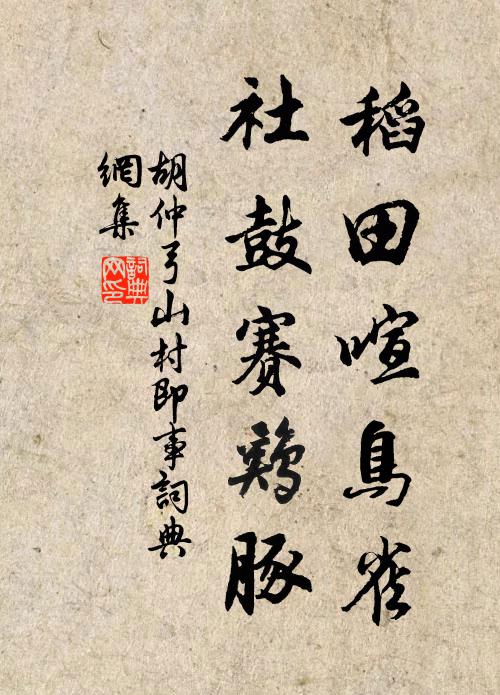 稻田喧鳥雀
社鼓賽鷄豚
胡仲弓山村即事詞典
網集
詞典網印